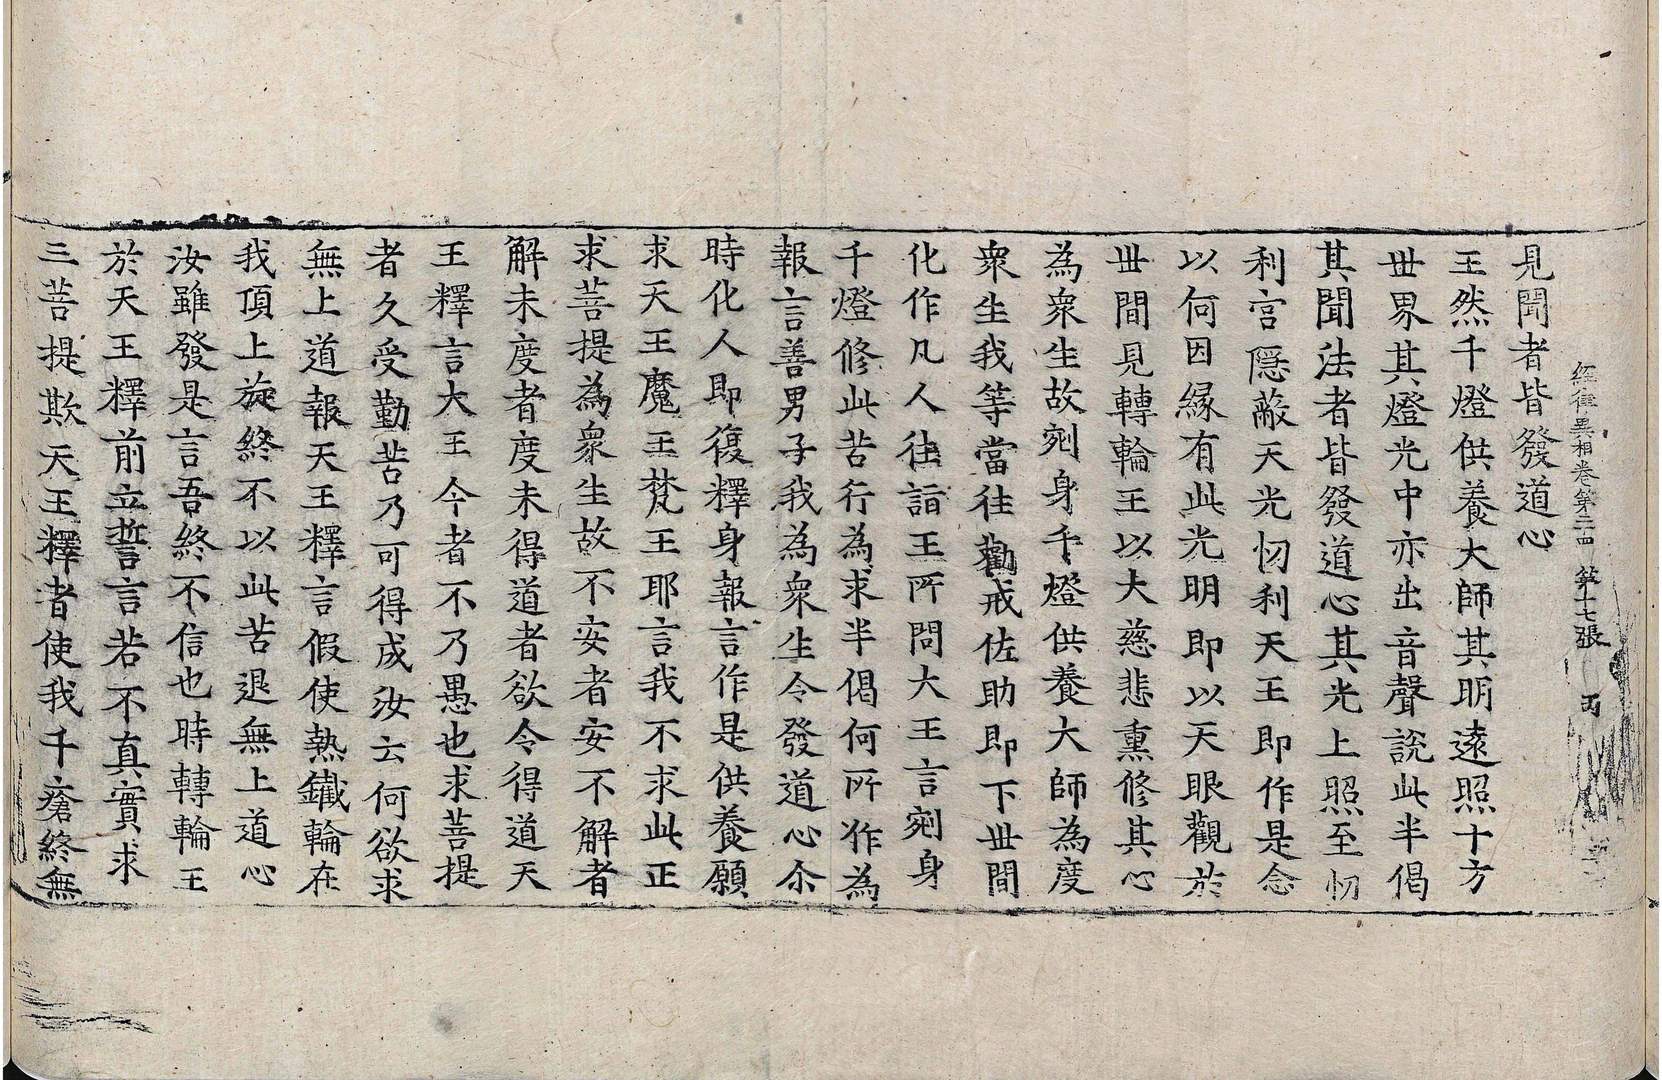 經律異相卷第二十四 第十七張 丙
見聞者皆發道心
王然千燈供養大師其明遠照十方
世界其燈光中亦出音聲說此半偈
其聞法者皆發道心其光上照至忉
利宮隱蔽天光忉利天王即作是念
以何因緣有此光明即以天眼觀於
世間見轉輪王以大慈悲熏修其心
為衆生故剜身千燈供養大師為度
衆生我等當往勸戒佐助即下世間
化作凡人往詣王所問大王言剜身
千燈修此苦行為求半偈何所作為
報言善男子我為衆生令發道心尒
時化人即復釋身報言作是供養願
求天王魔王梵王耶言我不求此正
求菩提為衆生故不安者安不解者
解未度者度未得道者欲令得道天
王釋言大王今者不乃愚也求菩提
者久受勤苦乃可得成汝云何欲求
無上道報天王釋言假使熱鐵輪在
我頂上旋終不以此苦退無上道心
汝雖發是言吾終不信也時轉輪王
於天王釋前立誓言若不真實求
三菩提欺天王釋者使我千瘡終無